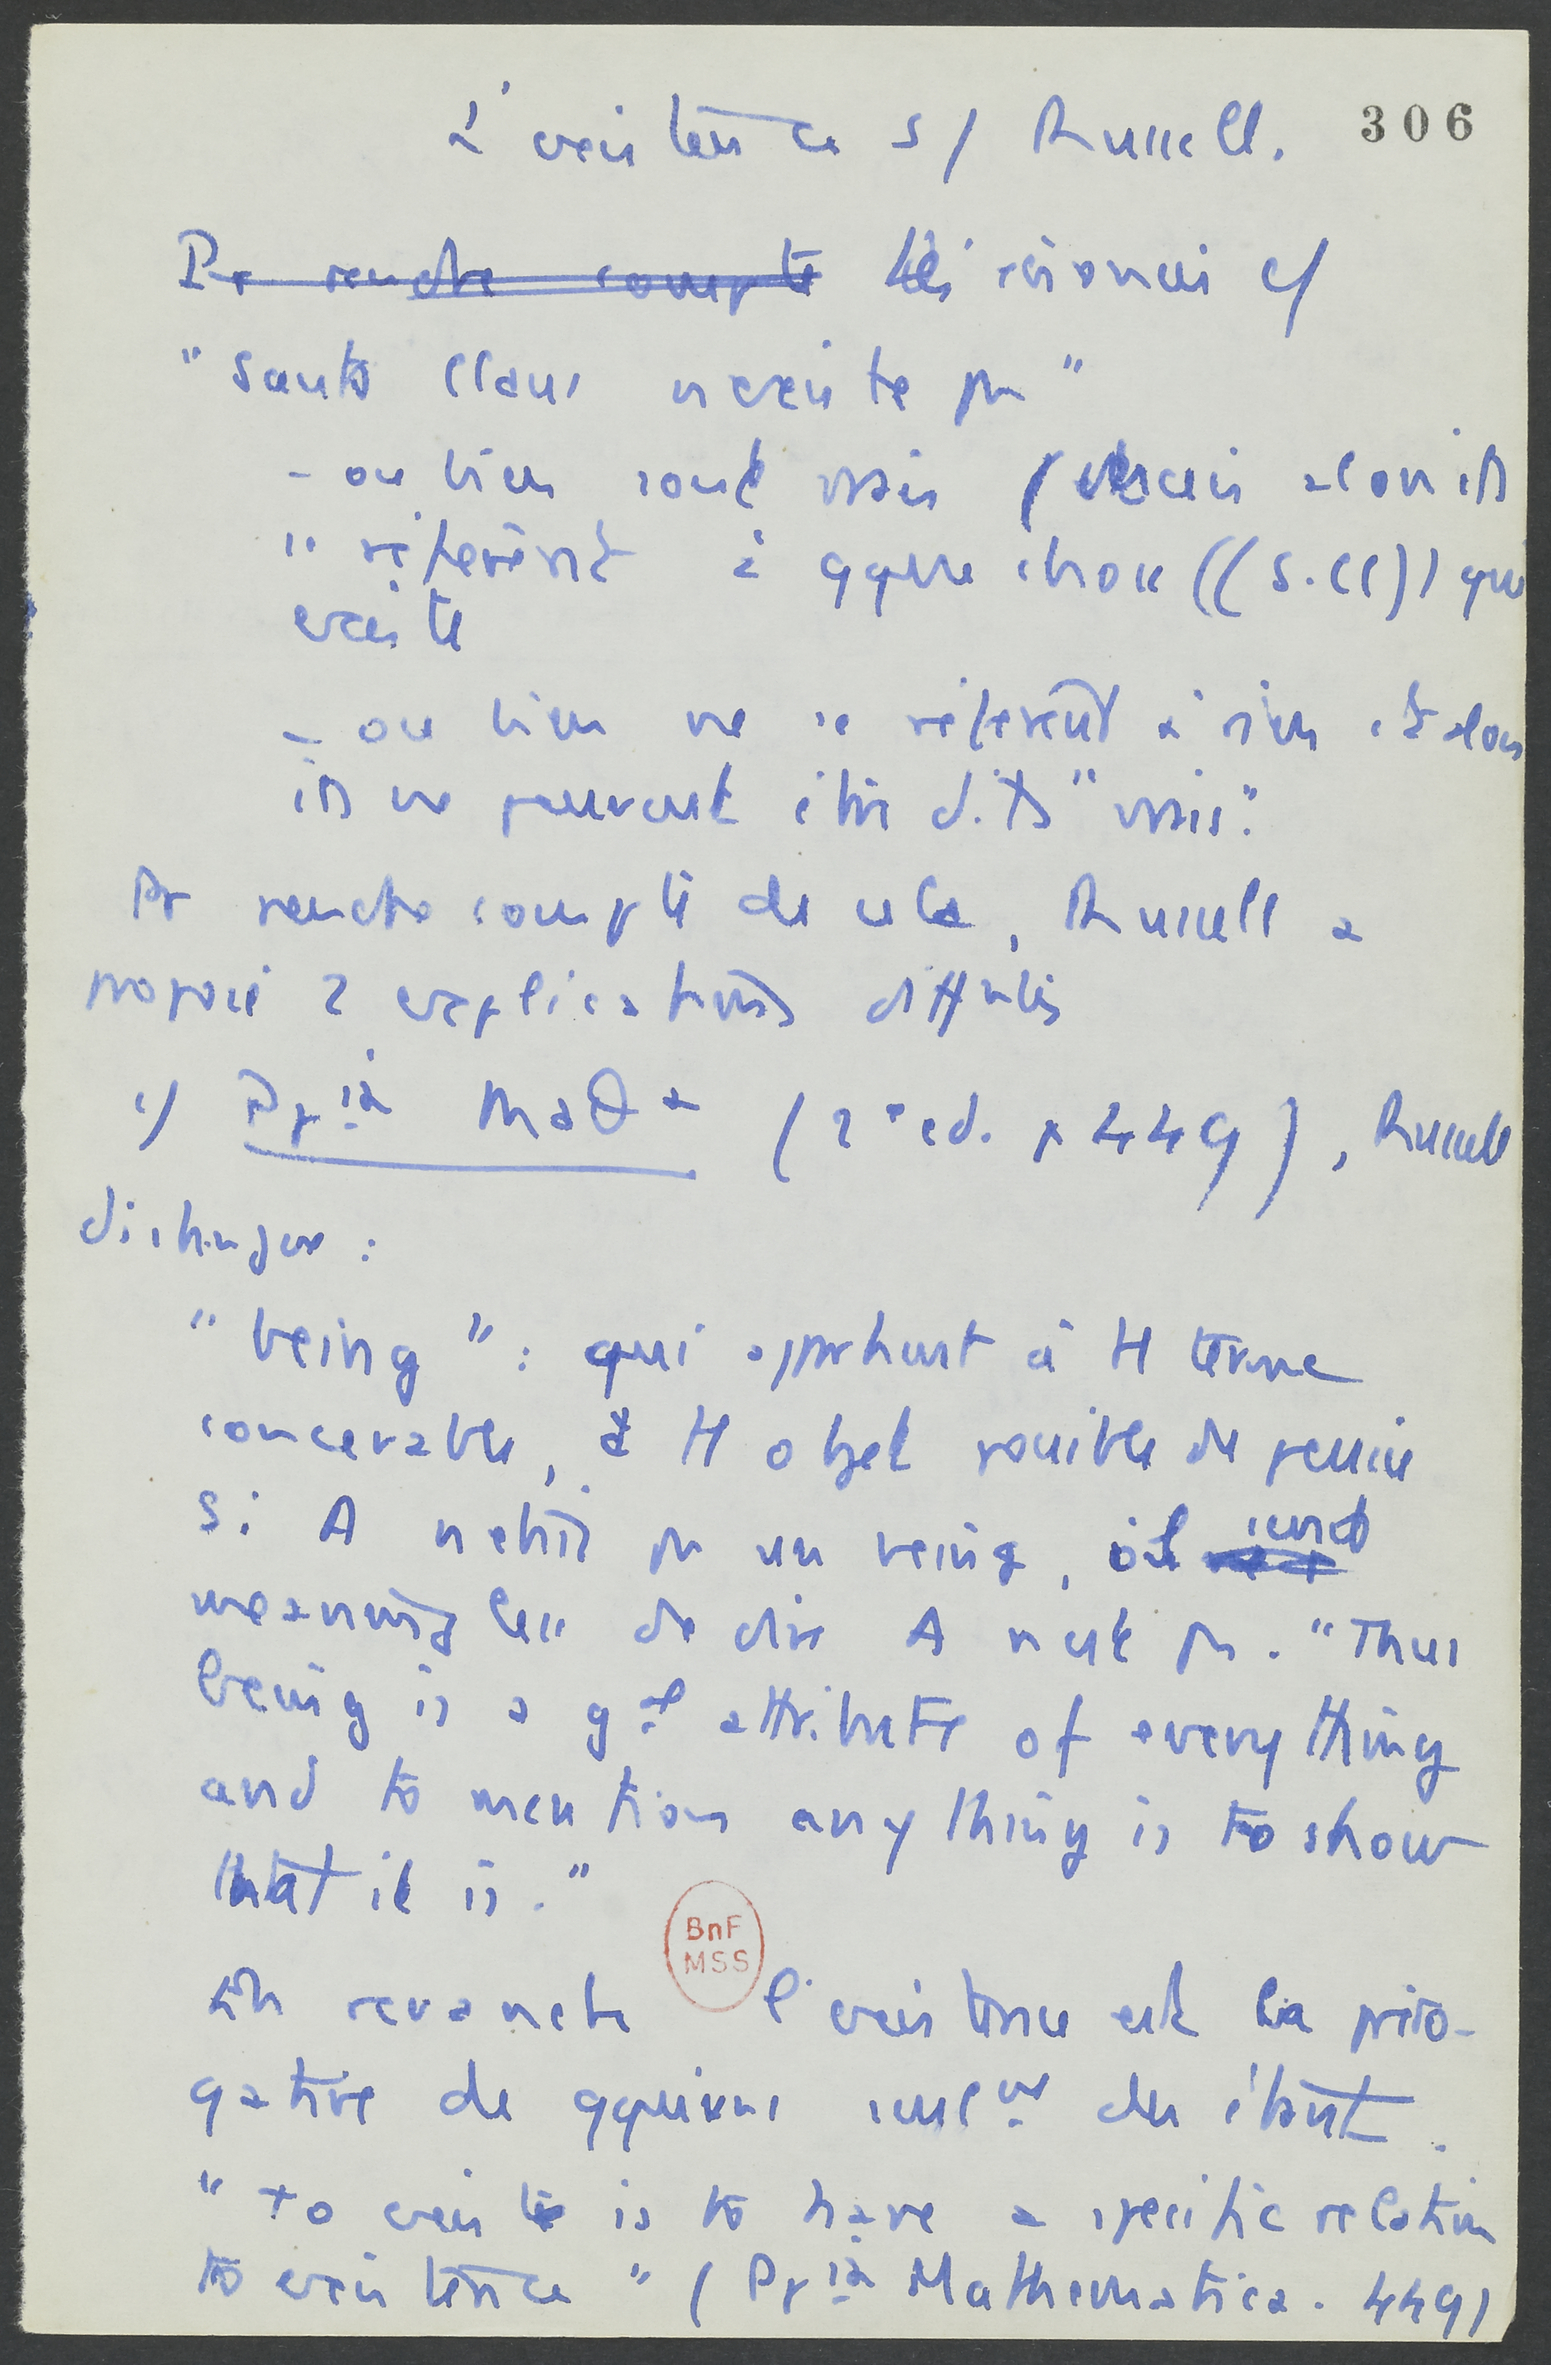 L'existence s/ Russell. 306
Pr rendre compte des énoncés c/
"Santa Claus n'existe pas"
- ou bien sont vrais (mais alors ils
se réfèrent à qque chose ((S.Cl)) qui
existe
- ou bien ne se réfèrent à rien et alors
ils ne peuvent être dits "vrais".
Pr rendre compte de cela, Russell a
proposé 2 explications difftes
1/ Ppia Maθa (2e ed. p 449), Russell
distingue :
"being" : qui appartient à tt terme
concevable, à tt objet possible de pensée
Si A n'était pas un being, il serait
meaningless de dire A n'est pas. "Thus
being is a gal attribute of everything
and to mention anything is to show
that it is."
En revanche l'existence est la préro-
gative de qques uns seulmt des étant.
"to exist is to have a specific relation
to existence" (Ppia Mathematica. 449)
BnF
MSS